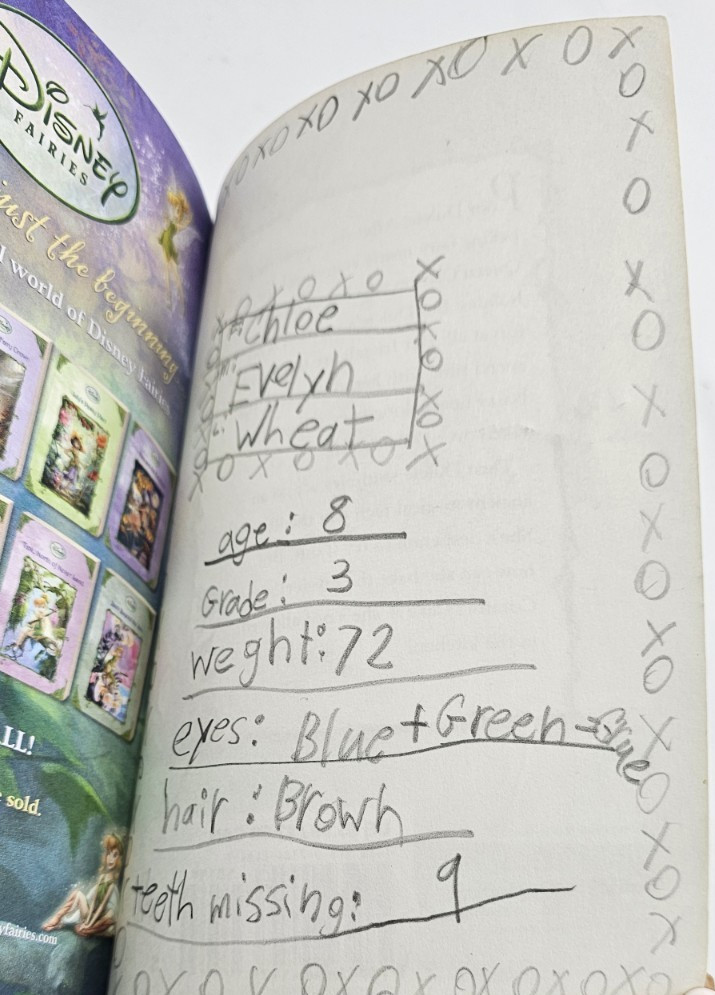 DISNEY
FAIRIES
just the beginning
world of Disney Fairies
LL!
sold.
fairies.com
XOXOXOXOXOXOX
O
X
O
X
O
X
O
X
O
X
O
X
O
X
O
X
X O X O X O X
Chloe
O
X
Evelyn
O
X
Wheat
O
X O X O X O X
age: 8
Grade: 3
weght: 72
eyes: Blue + Green - Blue
hair: Brown
teeth missing: 9
OXOXOXOXOXOXOXO